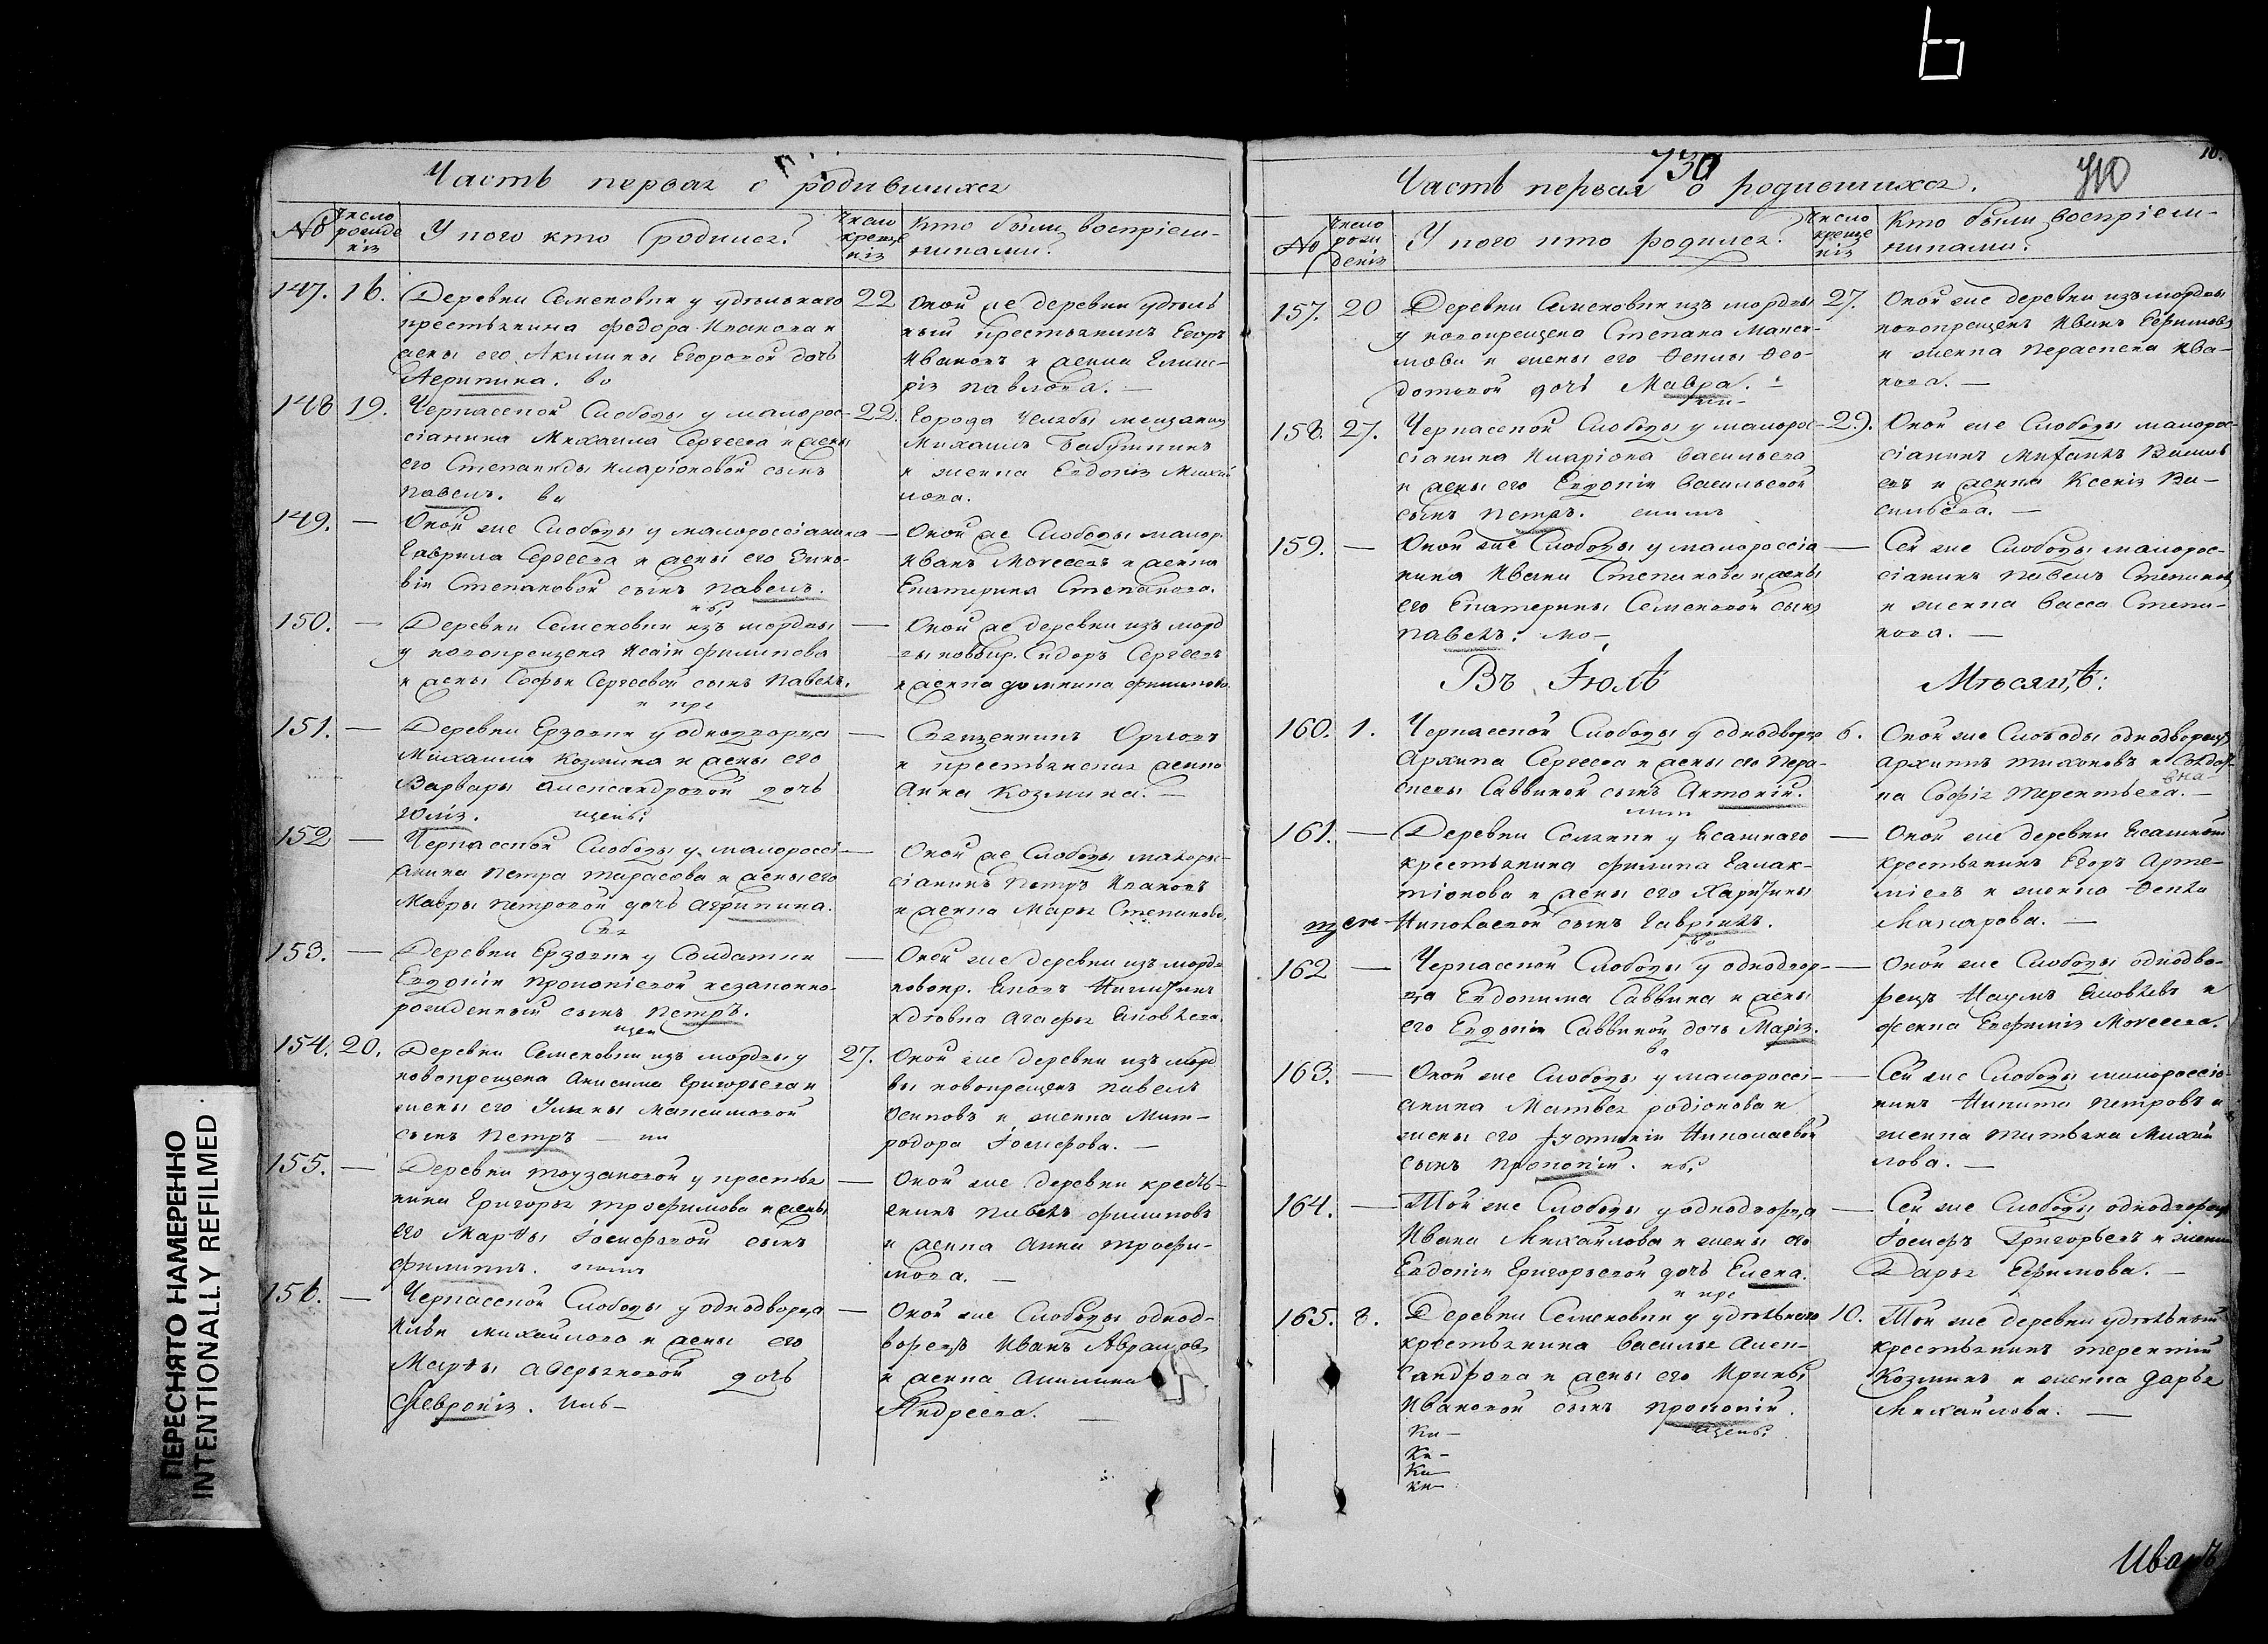 730
10.
Часть первая о родившихся
№
число рождения
У кого кто родился?
число крещения
Кто были восприемниками?
147. 16. Деревни Семеновки у удельнаго 22
крестьянина Федора Иванова и
жены его Акилины Егоровой дочь
Агрипина.
Оной же деревни удель
ный крестьянинъ Егоръ
Ивановъ и женка
Павлова. —
148 19. Черкасской Слободы у малорос- 22.
сіанина Михаила Сергеева и жены
его Степаниды Иларіоновой сынъ
Павелъ.
Города Челябы мещанинъ
Михаилъ Бабушкинъ
и женка Евдокія Михай
лова.
149. — Оной же Слободы у малороссіанина —
Гаврила Сергеева и жены его Зино-
віи Степановой сынъ Павелъ.
Оной же Слободы малор.
Иванъ Моѵсеевъ и женка
Екатерина Степанова.
150. — Деревни Семеновки изъ мордвы —
у новокрещена Исаіи Филипова
и жены Софьи Сергеевой сынъ Павелъ.
Оной же деревни изъ морд
вы новокр. Сидоръ Сергеевъ
и женка Домникия Филипова.
151. — Деревни Ерзовки у однодворца —
Михаила Козмина и жены его
Варвары Александровой дочь
Юлія.
Священникъ Орловъ
и крестьянская женка
Анна Козмина. —
152 — Черкасской Слободы у малороссі- —
анина Петра Тарасова и жены его
Мавры Петровой дочь Агрипина.
Оной же Слободы малорос-
сіанинъ Петръ Ивановъ
и женка Марья Степанова.
153. — Деревни Ерзовки у Солдатки —
Евдокіи Прокопіевой незаконно-
рожденный сынъ Петръ.
Оной же деревни изъ мордв.
новокр. Яковъ Никитинъ
и вдовка Агафья Яковлева.
154. 20. Деревни Семеновки изъ мордвы у 27.
новокрещена Анисима Григорьева и
жены его Ульяны Максимовой
сынъ Петръ —
Оной же деревни изъ морд
вы новокрещенъ Павелъ
Осиповъ и женка Мит-
родора Іосифова. —
155. — Деревни Таузаковой у крестья —
нина Григорья Трофимова и жены
его Марѳы Іосифовой сынъ
Филиппъ.
Оной же деревни кресть-
янинъ Павелъ Филиповъ
и женка Анна Трофи-
мова. —
156. — Черкасской Слободы у однодворца —
Ильи Михайлова и жены его
Марѳы Аверьяновой дочь
Февронія.
Оной же Слободы однод-
ворецъ Иванъ Абрамовъ
и женка Акилина
Андреева. —
Часть первая о родившихся.
№
число рожденія
У кого кто родился?
число крещенія
Кто были воспріем-
никами?
157. 20 Деревни Семеновки изъ мордвы 27.
у новокрещена Степана Макси-
мова и жены его Ѳеклы Ѳео-
дотовой дочь Мавра.
Оной же деревни изъ мордвы
новокрещенъ Иванъ Ефимовъ
и женка Параскева Ива-
нова. —
158. 27. Черкасской Слободы у малорос- 29.
сіанина Иларіона Васильева
и жены его Евдокіи Васильевой
сынъ Петръ.
Оной же Слободы малорос-
сіанинъ Михаилъ Василь
евъ и женка Ксенія Ва-
сильева. —
159. — Оной же Слободы у малороссіа —
нина Ивана Степанова и жены
его Екатерины Семеновой сынъ
Павелъ.
Сей же Слободы малорос-
сіанинъ Павелъ Степановъ
и женка Васса Степа-
нова. —
Въ Іюлѣ Мѣсяцѣ:
160. 1. Черкасской Слободы у однодворца 6.
Архипа Сергеева и жены его Пара-
скевы Саввиной сынъ Антоній.
Оной же Слободы однодворецъ
Архипъ Тихоновъ и Солдат-
ка Софія Терентьева. —
161. — Деревни Селезни у Ясашнаго —
крестьянина Филипа Галак-
тіонова и жены его Харитины
Николаевой сынъ Гавріилъ.
Оной же деревни Ясашной
крестьянинъ Егоръ Арте-
міевъ и женка Ѳекла
Макарова. —
162 — Черкасской Слободы у однодвор- —
ца Евдокима Саввина и жены
его Евдокіи Саввиной дочь Марія.
Оной же Слободы однодво-
рецъ Наумъ Яковлевъ и
женка Евфимія Моѵсеева.
163. — Оной же Слободы у малороссі- —
анина Матвея Родіонова и
жены его Іустиніи Николаевой
сынъ Прокопій.
Сей же Слободы малороссіа-
нинъ Никита Петровъ и
женка Татьяна Михай
лова. —
164. — Той же Слободы у однодворца —
Ивана Михайлова и жены его
Евдокіи Григорьевой дочь Елена.
Сей же Слободы однодворецъ
Іосифъ Григорьевъ и женка
Дарья Ефимова. —
165. 8. Деревни Семеновки у удельнаго 10.
крестьянина Василья Алек-
сандрова и жены его Ирины
Ивановой сынъ Прокопій.
Той же деревни удельной
крестьянинъ Терентій
Козминъ и женка Дарья
Михайлова. —
Иванъ
ПЕРЕСНЯТО НАМЕРЕННО
INTENTIONALLY REFILMED